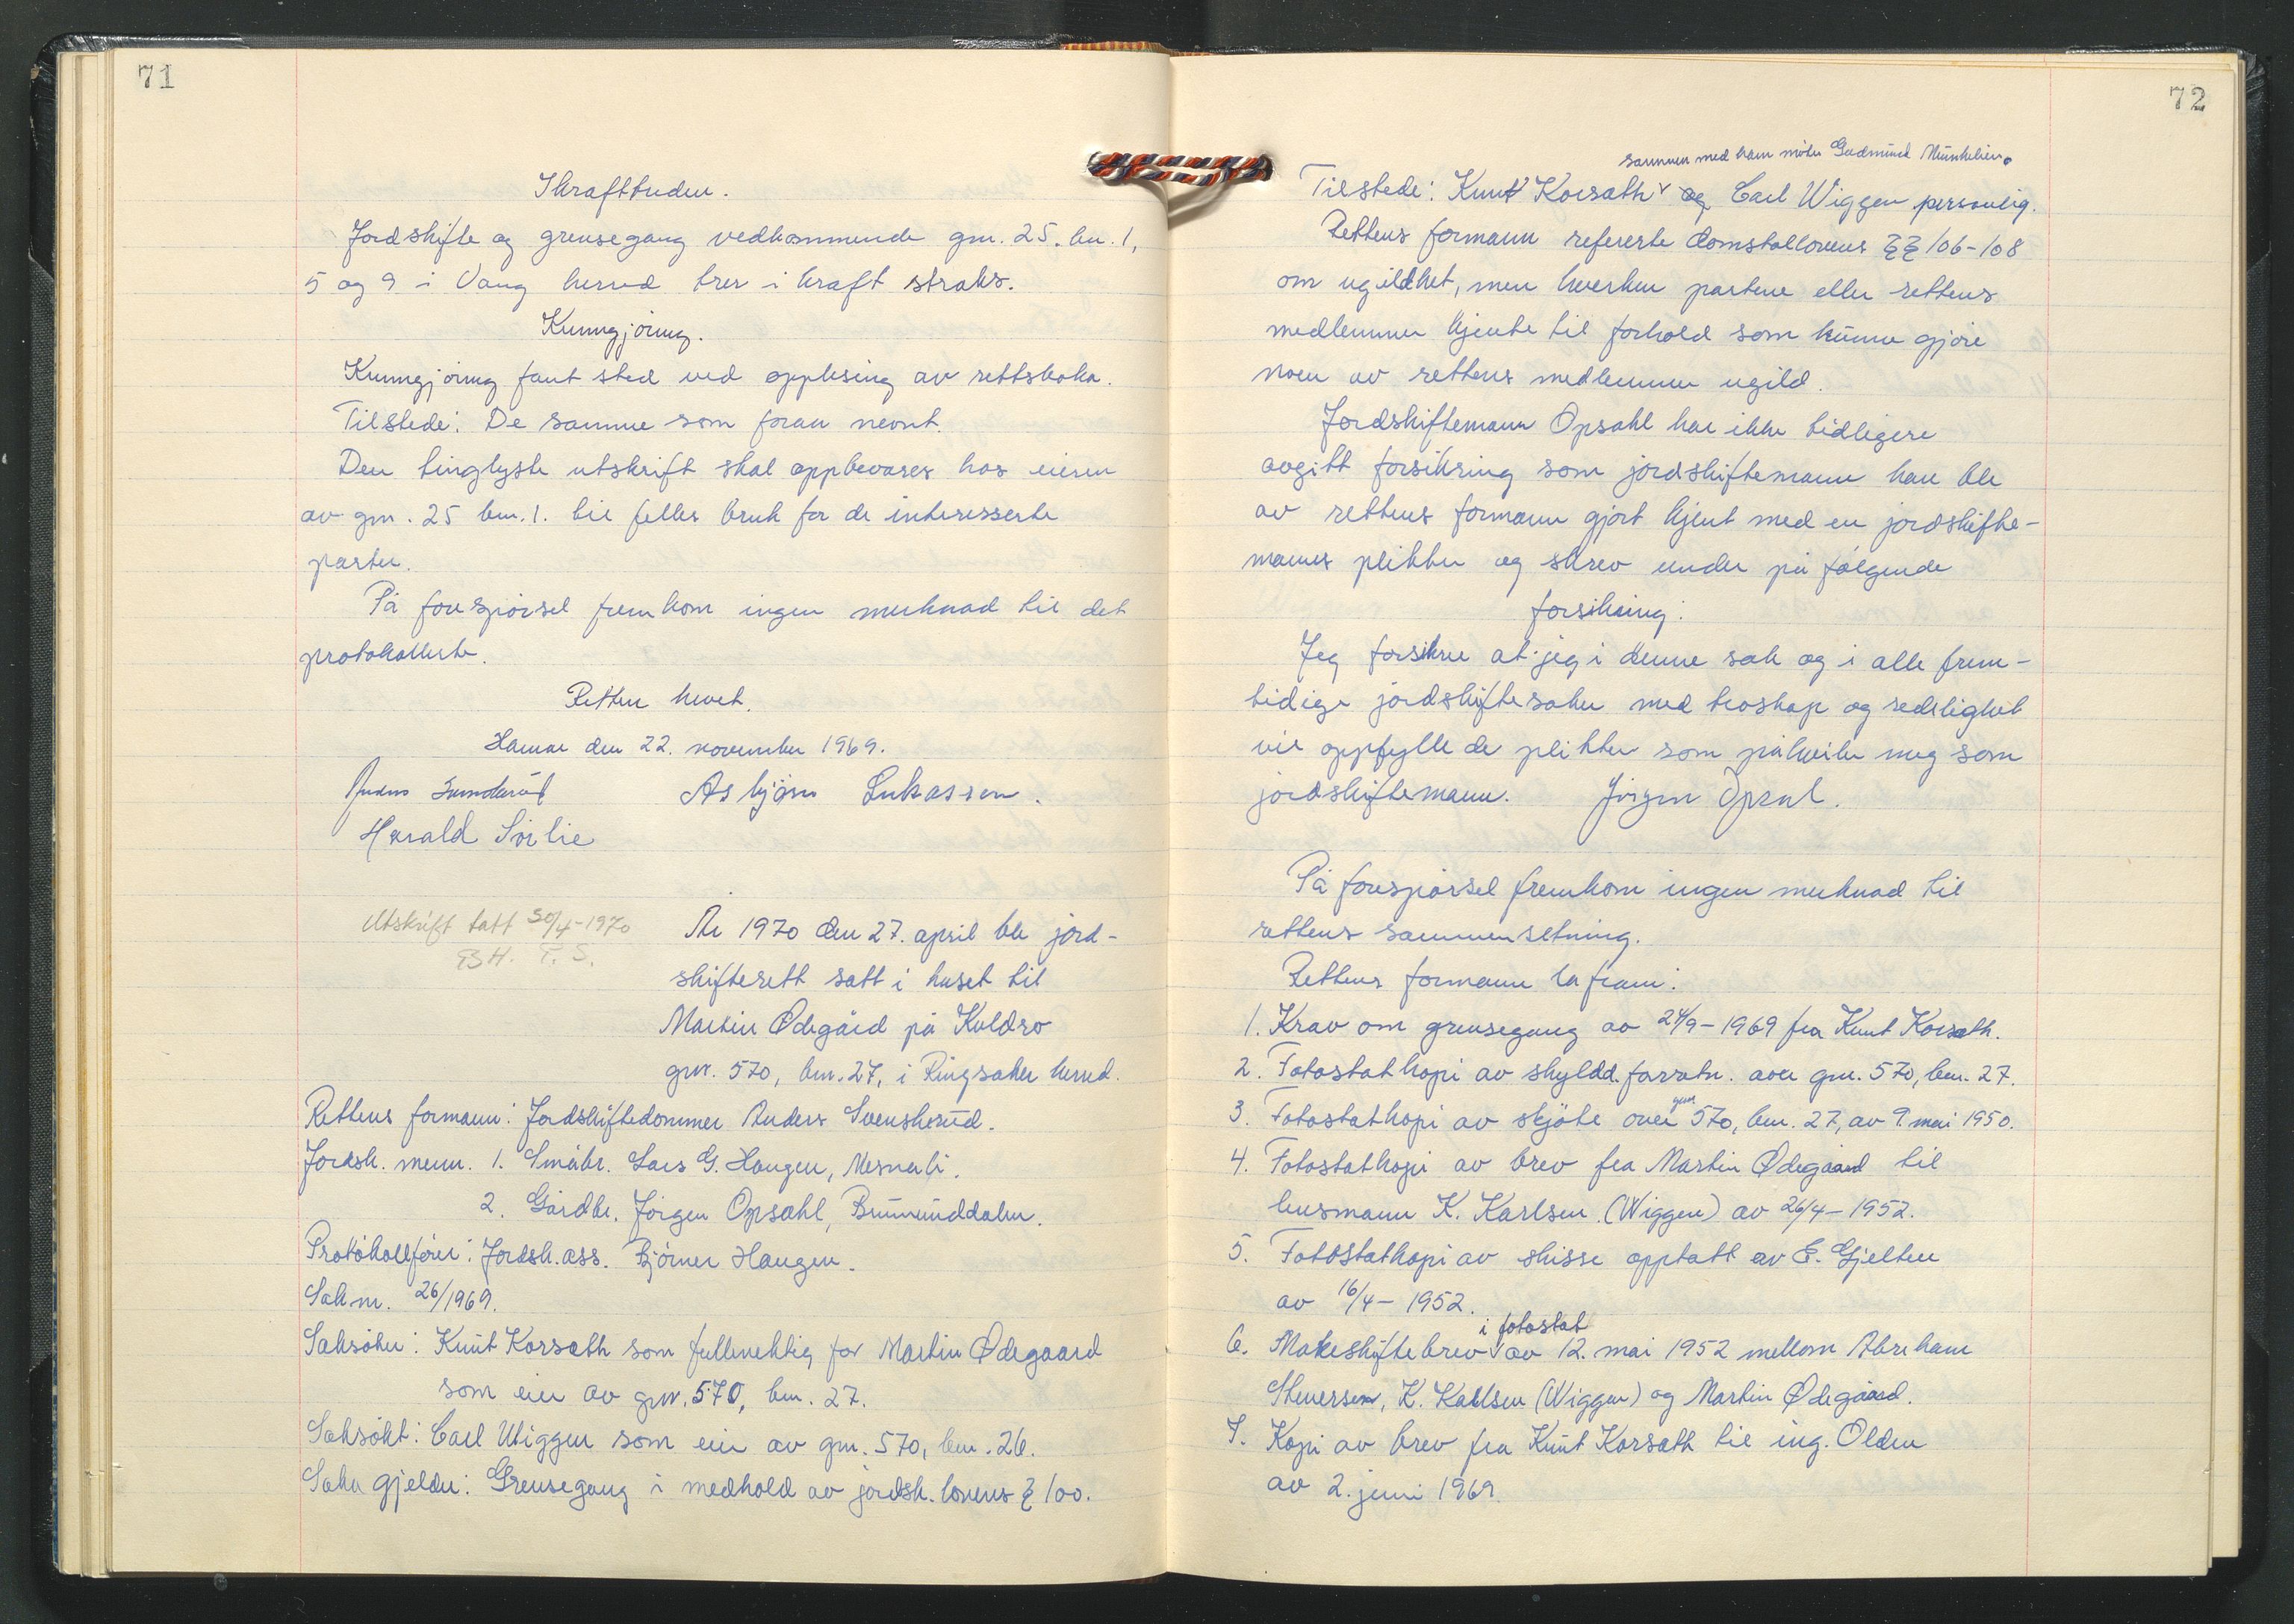 71
Ikrafttreden.
Jordskifte og grensegang vedkommende gnr. 25. bnr. 1,
5 og 9 i Vang herred trer i kraft straks.
Kunngjöring.
Kunngjöring fant sted ved opplesing av rettsboka.
Tilstede: De samme som foran nevnt.
Den tinglyste utskrift skal oppbevares hos eieren
av gnr. 25 bnr. 1. til felles bruk for de interesserte
parter.
På forespörsel fremkom ingen merknad til det
protokollerte.
Retten hevet.
Hamar den 22. november 1969.
Asbjörn Lukassen.
Harald Sörlie
Utskrift tatt 30/4-1970
BH. T. S.
År 1970 den 27. april ble jord-
skifterett satt i huset til
Martin Ødegård på Koldro
gnr. 570, bnr. 27, i Ringsaker herred.
Rettens formann: Jordskiftedommer Anders Svenskerud.
Jordsk. menn. 1. Småbr. Lars G. Haugen, Mesnali.
2. Gårdbr. Jörgen Opsahl, Brumunddalen.
Protokollförer: Jordsk. ass. Björner Haugen.
Sak nr. 26/1969.
Saksöker: Knut Korsæth som fullmektig for Martin Ødegaard
som eier av gnr. 570, bnr. 27.
Saksökt: Carl Wiggen som eier av gnr. 570, bnr. 26.
Saken gjelder: Grensegang i medhold av jordsk. lovens § 100.
72
sammen med ham möter Gudmund Munkelien.
Tilstede: Knut Korsæth og Carl Wiggen personlig.
Rettens formann refererte domstollovens §§ 106-108
om ugildhet, men hverken partene eller rettens
medlemmer kjente til forhold som kunne gjöre
noen av rettens medlemmer ugild.
Jordskiftemann Opsahl har ikke tidligere
avgitt forsikring som jordskiftemann han ble
av rettens formann gjort kjent med en jordskifte-
manns plikter og skrev under på fölgende
forsikring:
Jeg forsikrer at jeg i denne sak og i alle frem-
tidige jordskiftesaker med troskap og redelighet
vil oppfylle de plikter som påhviler meg som
jordskiftemann. Jörgen Opsal.
På forespörsel fremkom ingen merknad til
rettens sammensetning.
Rettens formann la fram:
1. Krav om grensegang av 24/9-1969 fra Knut Korsæth.
2. Fotostatkopi av skyldd. forretn. over gnr. 570, bnr. 27.
3. Fotostatkopi av skjöte over gnr 570, bnr. 27, av 9. mai 1950.
4. Fotostatkopi av brev fra Martin Ødegaard til
lensmann K. Karlsen (Wiggen) av 26/4-1952.
5. Fotostatkopi av skisse opptatt av E. Gjelten
av 16/4-1952.
6. Makeskiftebrev i fotostat av 12. mai 1952 mellom Abraham
Stenersen, K. Karlsen (Wiggen) og Martin Ødegaard.
7. Kopi av brev fra Knut Korsæth til ing. Olden
av 2. juni 1969.